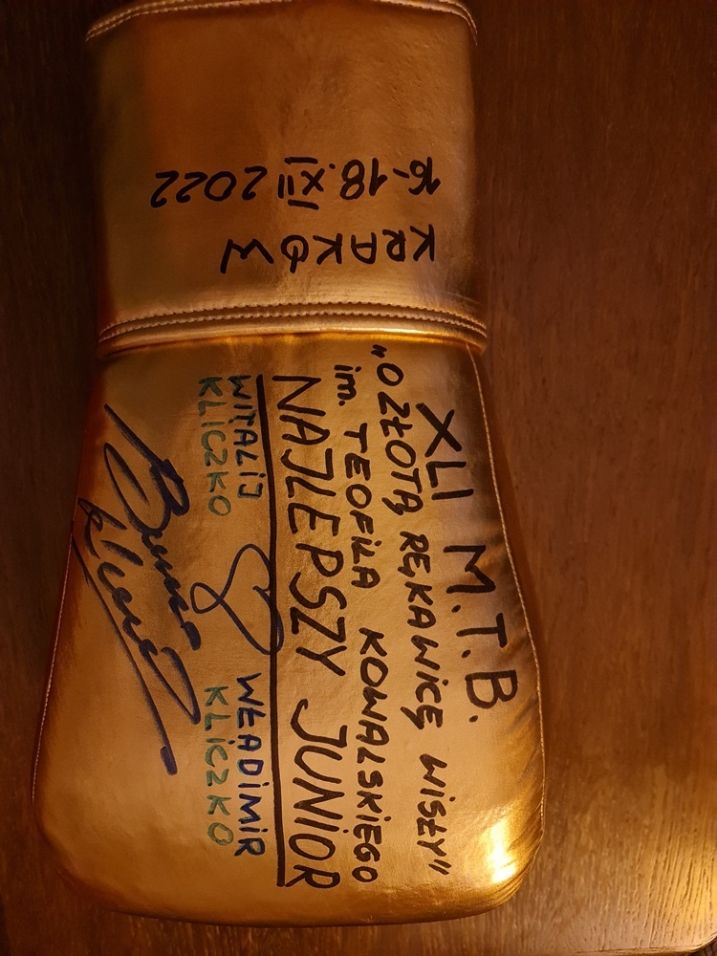 XLI M.T.B.
"O ZŁOTĄ RĘKAWICĘ WISŁY"
im. TEOFILA KOWALSKIEGO
NAJLEPSZY JUNIOR
WITALIJ WŁADIMIR
KLICZKO KLICZKO
KRAKÓW
16-18.XII 2022